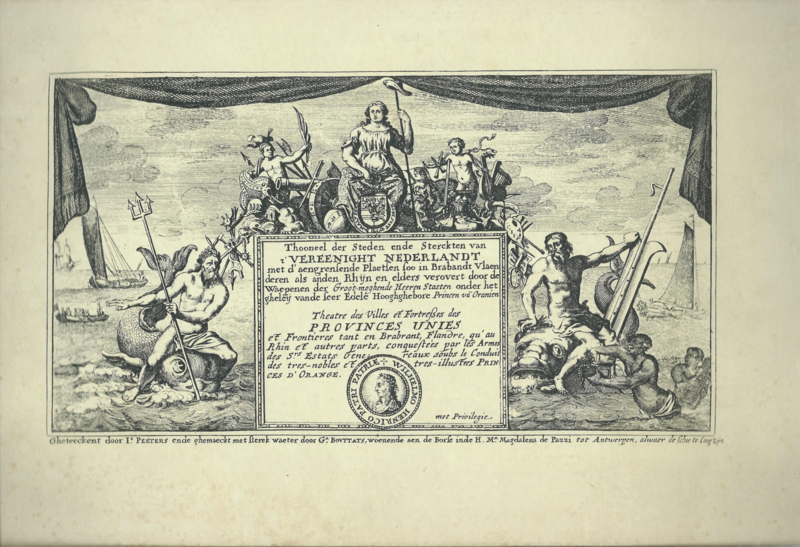 Thooneel der Steden ende Sterckten van
t'VEREENIGHT NEDERLANDT
met d'aengrensende Plaetsen soo in Brabandt Vlaen
deren als anden Rhijn en elders verovert door de
Waepenen der Groot-moghende Heeren Staeten onder het
gheleij vande seer Edele Hooghghebore Princen vā Oranien
Theatre des Villes et Fortresses des
PROVINCES UNIES
et Frontieres tant en Brabrant, Flandre, qu'au
Rhin et autres parts, conquestées par les Armes
des Srs Estats Gene reaux soubs le Conduit
des tres-nobles et tres-illustres PRIN
CES D'ORANGE.
WILHELMO HENRICO PATRI PATRIÆ
met Privilegie
Gheteeckent door Io PEETERS ende ghemaeckt met sterck waeter door Gs BOVTTATS, woenende aen de Borse inde H. Ma Magdalena de Pazzi tot Antwerpen, alwaer